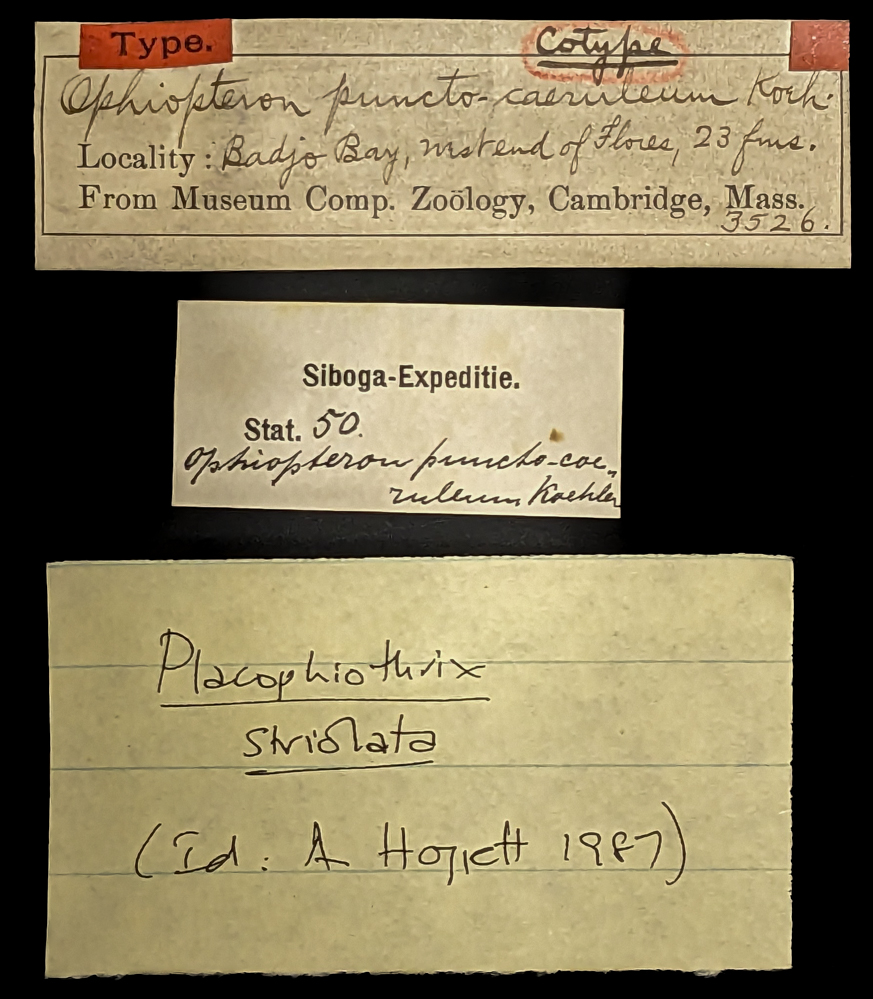 Type.
Cotype
Ophiopteron puncto-caeruleum Koeh.
Locality : Badjo Bay, west end of Flores, 23 fms.
From Museum Comp. Zoölogy, Cambridge, Mass.
3526.
Siboga-Expeditie.
Stat. 50.
Ophiopteron puncto-coe„
ruleum Koehler
Placophiothrix
striolata
(Id: A Hoggett 1987)